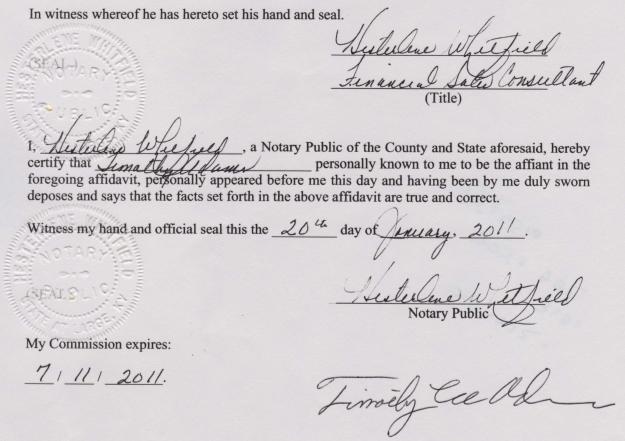 In witness whereof he has hereto set his hand and seal.
Hesterlene Whitfield
HESTERLENE WHITFIELD
NOTARY
PUBLIC
STATE AT LARGE, KY
(SEAL)
Financial Sales Consultant
(Title)
I, Hesterlene Whitfield, a Notary Public of the County and State aforesaid, hereby
certify that Timothy Adams personally known to me to be the affiant in the
foregoing affidavit, personally appeared before me this day and having been by me duly sworn
deposes and says that the facts set forth in the above affidavit are true and correct.
Witness my hand and official seal this the 20th day of January, 2011.
HESTERLENE WHITFIELD
NOTARY
PUBLIC
STATE AT LARGE, KY
(SEAL)
Hesterlene Whitfield
Notary Public
My Commission expires:
7/11/2011.
Timothy Lee Adams